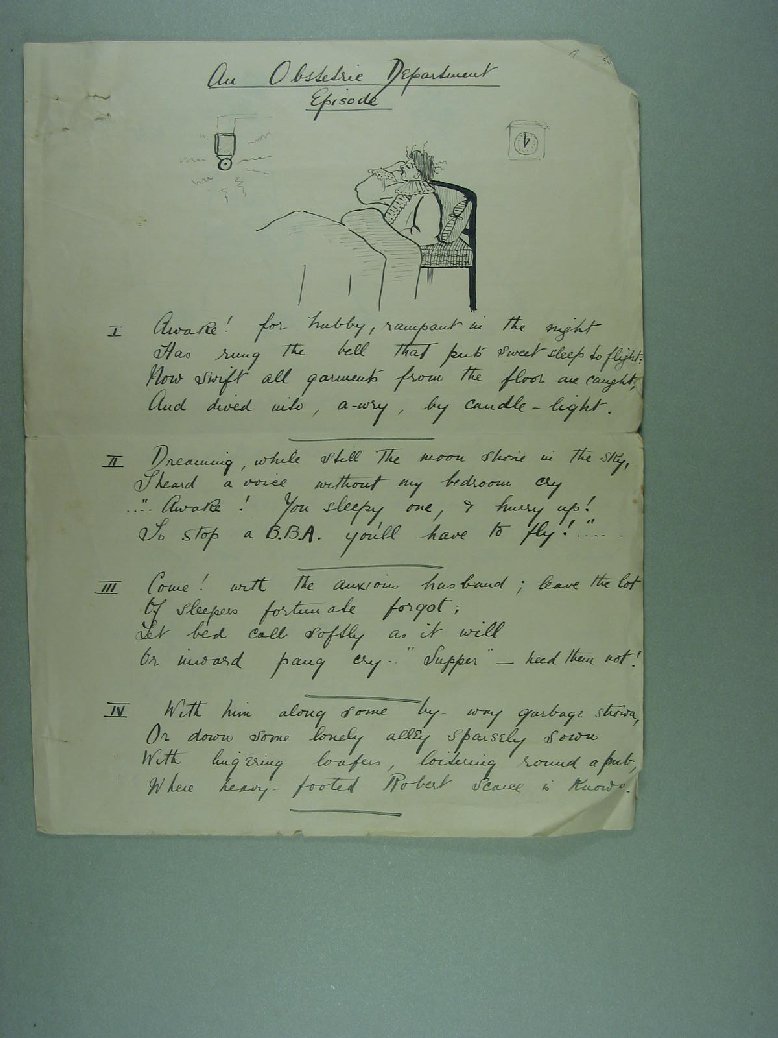 An Obstetric Department
Episode
I Awake! for hubby, rampant in the night
Has rung the bell that puts sweet sleep to flight:
Now swift all garments from the floor are caught,
And dived into, a-wry, by candle-light.
II Dreaming, while still the moon shone in the sky,
I heard a voice without my bedroom cry
"Awake! You sleepy one, & hurry up!
To stop a B.B.A. you'll have to fly!"
III Come! with the anxious husband; leave the lot
Of sleepers fortunate forgot;
Let bed call softly as it will
Or inward pang cry "Supper" — heed them not!
IV With him along some by-way garbage strown,
Or down some lonely alley sparsely sown
With lingering loafers, loitering round a pub,
Where heavy-footed Robert scarce is known.